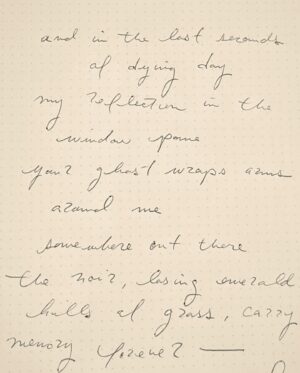 and in the last seconds
of dying day
my reflection in the
window pane
your ghost wraps arms
around me
somewhere out there
the noir, losing emerald
hills of grass, carry
memory forever —